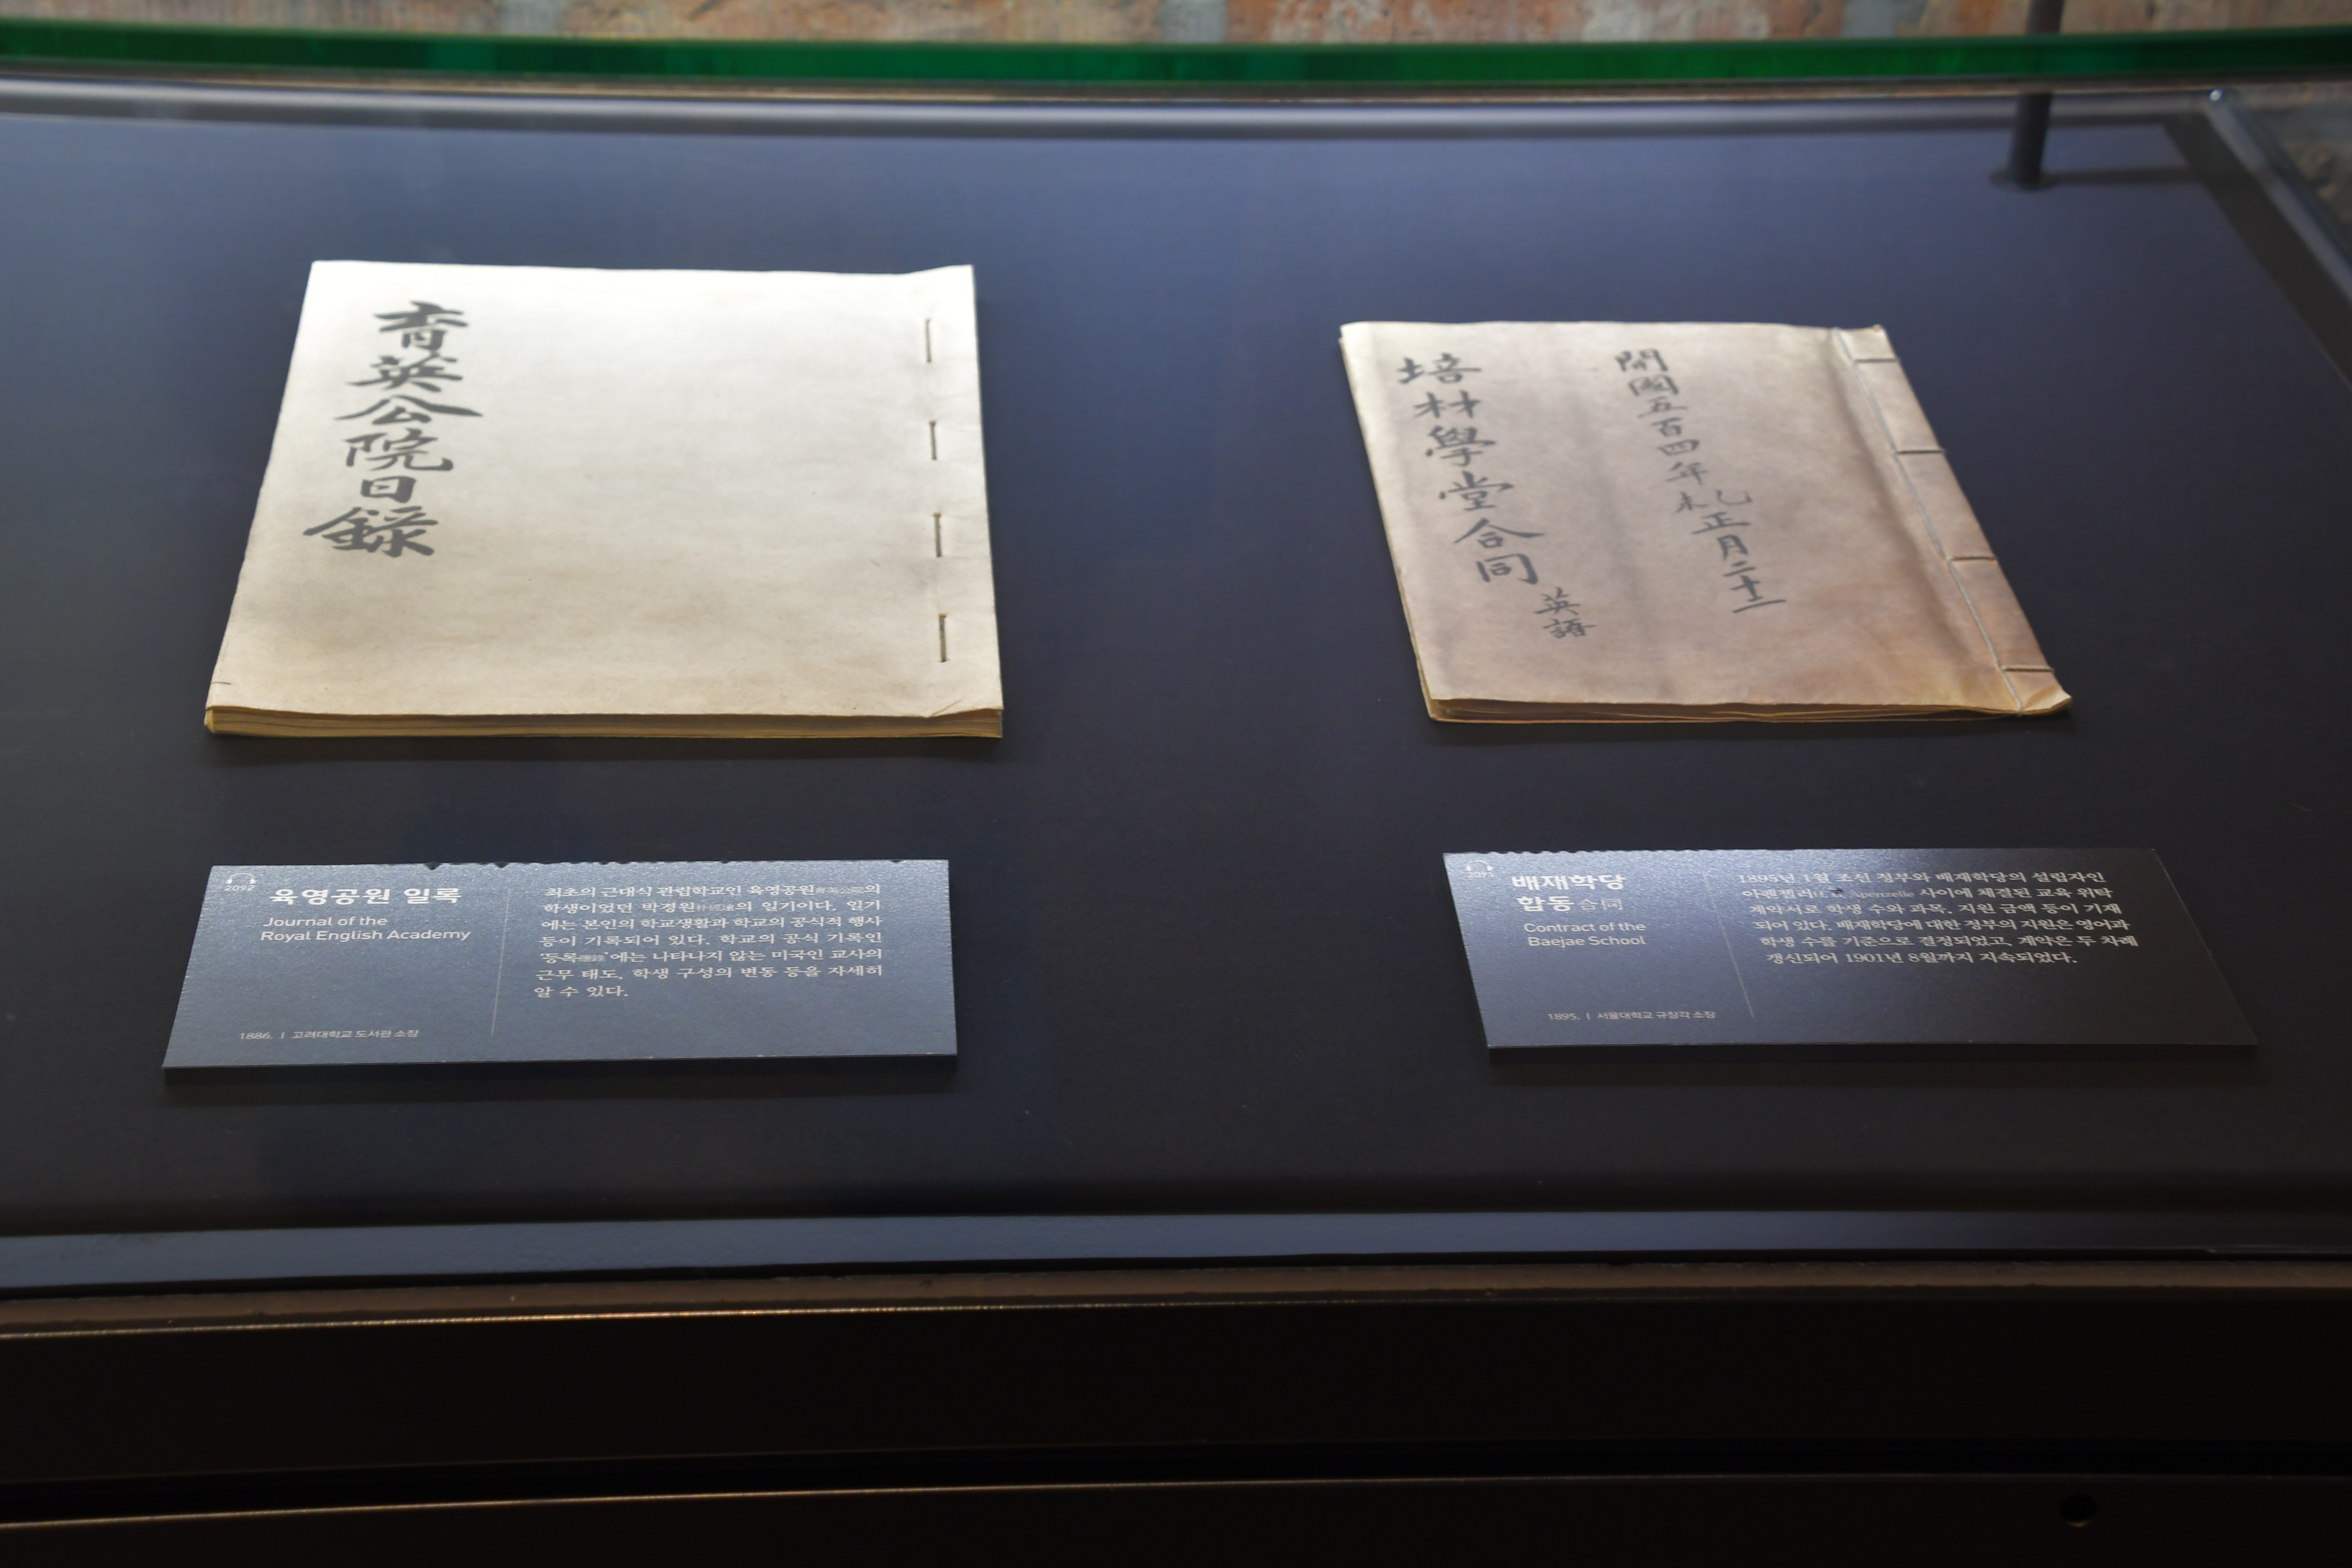 育英公院日錄
開國五百四年乙未正月二十二
培材學堂合同 英語
2092
육영공원 일록
Journal of the
Royal English Academy
1886. | 고려대학교 도서관 소장
최초의 근대식 관립학교인 육영공원育英公院의
학생이었던 박경원의 일기이다. 일기
에는 본인의 학교생활과 학교의 공식적 행사
등이 기록되어 있다. 학교의 공식 기록인
'등록謄錄'에는 나타나지 않는 미국인 교사의
근무 태도, 학생 구성의 변동 등을 자세히
알 수 있다.
배재학당
합동合同
Contract of the
Baejae School
1895. | 서울대학교 규장각 소장
1895년 1월 조선 정부와 배재학당의 설립자인
아펜젤러 Apenzelle 사이에 체결된 교육 위탁
계약서로 학생 수와 과목, 지원 금액 등이 기재
되어 있다. 배재학당에 대한 정부의 지원은 영어과
학생 수를 기준으로 결정되었고, 계약은 두 차례
갱신되어 1901년 8월까지 지속되었다.